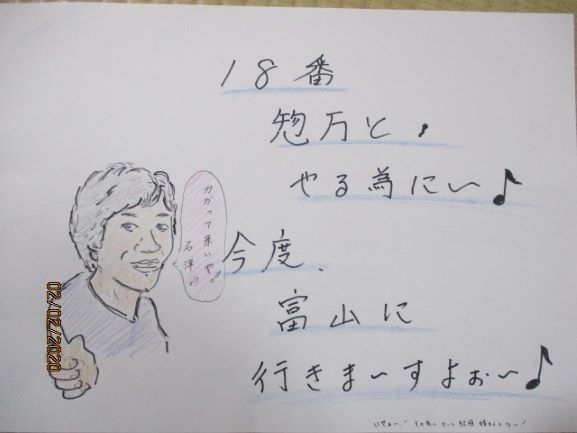 18番
惣万と、
やる為に〜♪
かかって来いや!!
石津
今度、
富山に
行きま〜すよぉ〜♪
02/02/2020